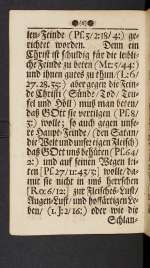 (8)
len-Feinde (Pf. 5/2:18/4:) ge-
richtet worden. Denn ein
Christ ist schuldig für die leibli-
che Feinde zu beten (Mt: 5/44;)
und ihnen gutes zu thun/(L: 6/
27. 28. 35:) aber gegen die Fein-
de Christi (Sünde/ Tod/ Teu-
fel und Höll) muß man beten/
daß GOtt sie vertilgen (Pf. 8/
3:) wolle; so auch gegen unse-
re Haupt-Feinde/ (den Satan/
die Welt und unser eigen Fleisch)
daß GOtt uns behüten (Pf. 64/
2:) und auf seinen Wegen lei-
ten (Pf. 27/11:43/3:) wolle/ da-
mit sie nicht in uns herrschen
(Ro: 6/12:) zur Fleisches-Lust/
Augen-Lust/ und hoffärtigen Le-
ben/ (1. J: 2/16:) oder wie die
Schlan-